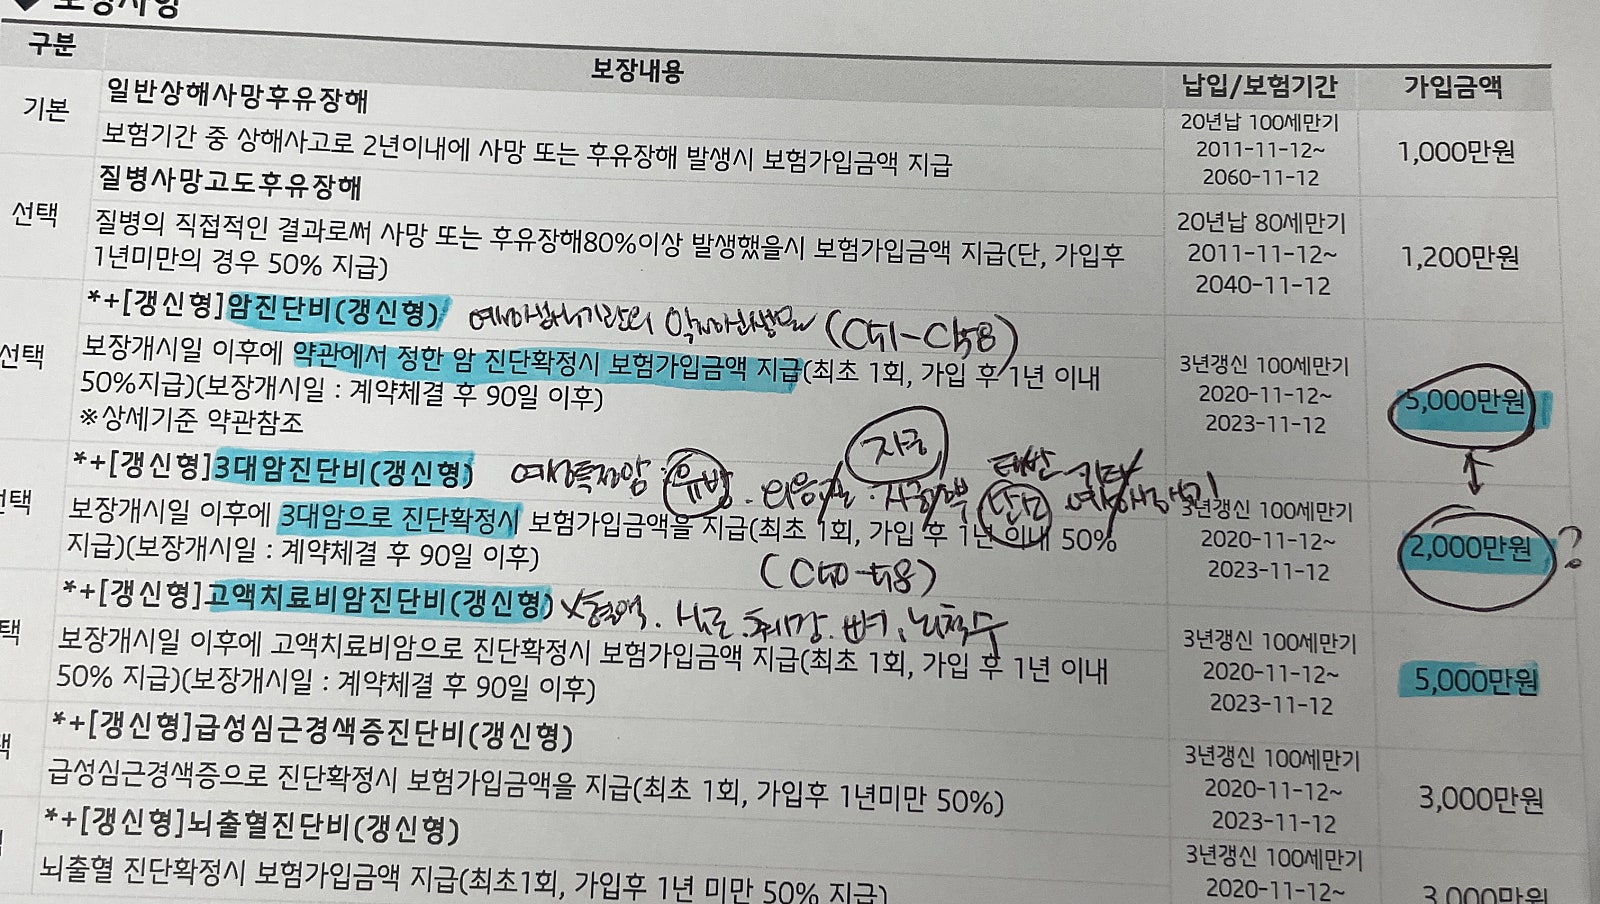 보장사항
구분 보장내용 납입/보험기간 가입금액
기본 일반상해사망후유장해
보험기간 중 상해사고로 2년이내에 사망 또는 후유장해 발생시 보험가입금액 지급
20년납 100세만기
2011-11-12~
2060-11-12
1,000만원
선택 질병사망고도후유장해
질병의 직접적인 결과로써 사망 또는 후유장해80%이상 발생했을시 보험가입금액 지급(단, 가입후
1년미만의 경우 50% 지급)
20년납 80세만기
2011-11-12~
2040-11-12
1,200만원
선택 *+[갱신형]암진단비(갱신형)
보장개시일 이후에 약관에서 정한 암 진단확정시 보험가입금액 지급(최초 1회, 가입 후 1년 이내
50%지급)(보장개시일 : 계약체결 후 90일 이후)
※상세기준 약관참조
3년갱신 100세만기
2020-11-12~
2023-11-12
5,000만원
자궁
태반 기타
선택 *+[갱신형]3대암진단비(갱신형) 여성특정암 : 유방 . 외음 난소
보장개시일 이후에 3대암으로 진단확정시 보험가입금액을 지급(최초 1회, 가입 후 1년 이내 50%
지급)(보장개시일 : 계약체결 후 90일 이후) (C50-58)
3년갱신 100세만기
2020-11-12~
2023-11-12
2,000만원 ?
택 *+[갱신형]고액치료비암진단비(갱신형) 혈액 . 식도 . 췌장 . 뼈 , 뇌척수
보장개시일 이후에 고액치료비암으로 진단확정시 보험가입금액 지급(최초 1회, 가입 후 1년 이내
50% 지급)(보장개시일 : 계약체결 후 90일 이후)
3년갱신 100세만기
2020-11-12~
2023-11-12
5,000만원
택 *+[갱신형]급성심근경색증진단비(갱신형)
급성심근경색증으로 진단확정시 보험가입금액을 지급(최초 1회, 가입후 1년미만 50%)
3년갱신 100세만기
2020-11-12~
2023-11-12
3,000만원
*+[갱신형]뇌출혈진단비(갱신형)
뇌출혈 진단확정시 보험가입금액 지급(최초1회, 가입후 1년 미만 50% 지급)
3년갱신 100세만기
2020-11-12~
3,000만원